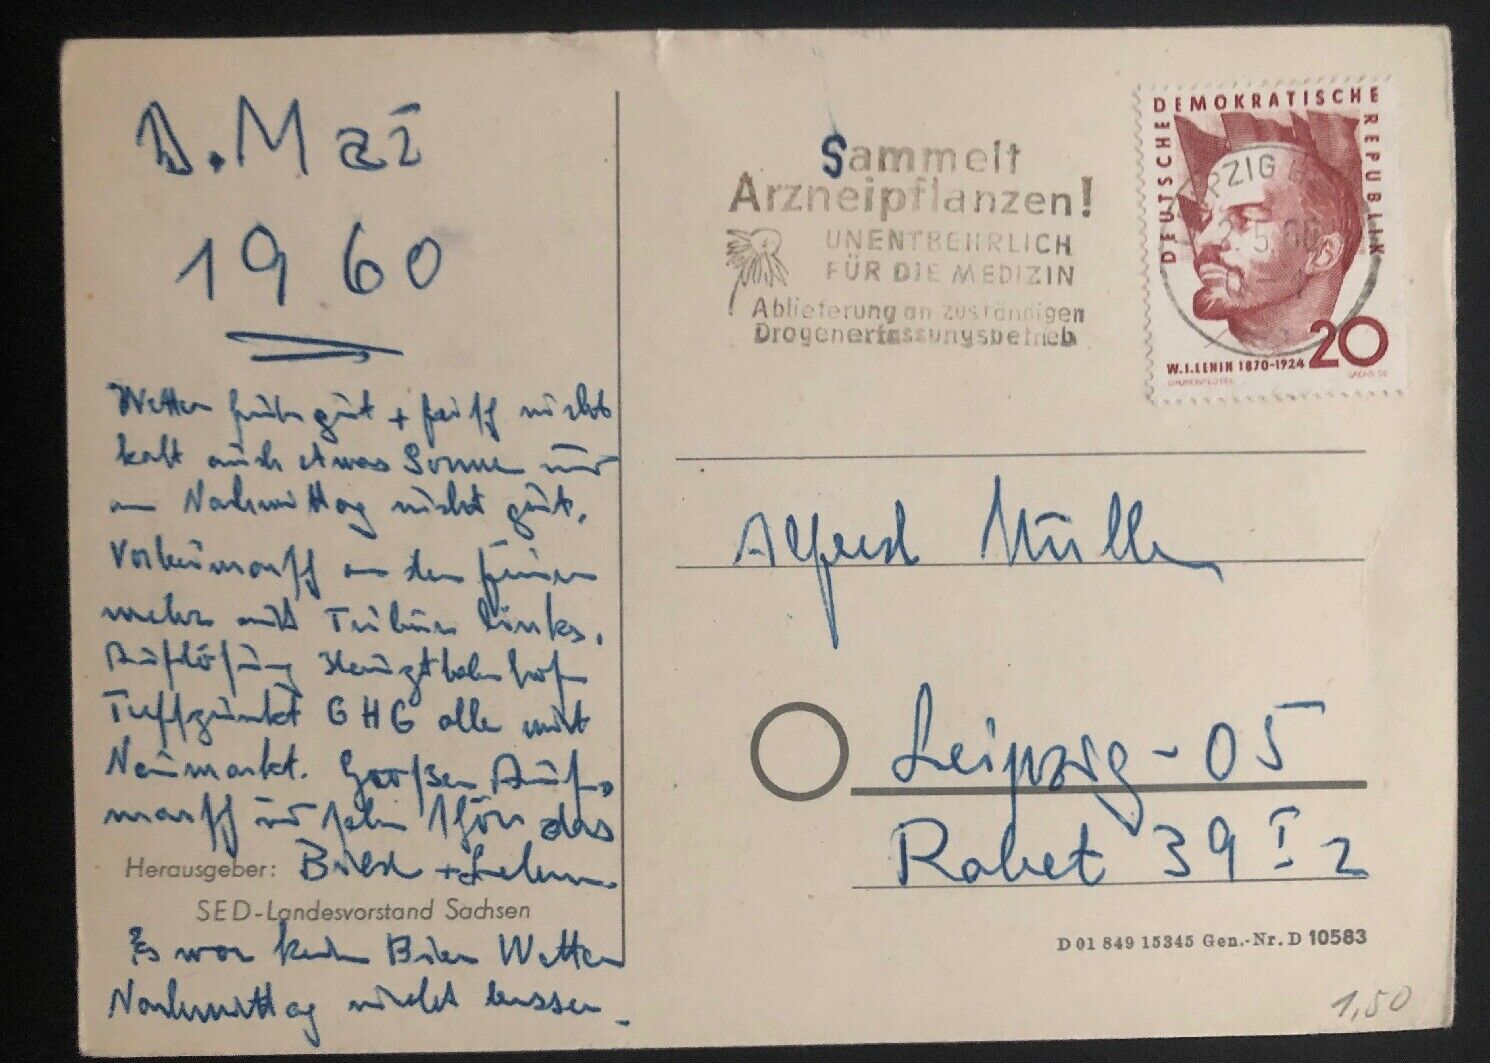 1. Mai
1960
Wetter früh gut + frisch nicht
kalt auch etwas Sonne nur
am Nachmittag nicht gut.
Vorbeimarsch an den
mehr mit Tribüne links.
Auflösung Hauptbahnhof
Treffpunkt GHG alle mit
Neumarkt. Großer Auf-
marsch und sehr schön das
Bild +
Herausgeber:
SED-Landesvorstand Sachsen
Es war kein Bier Wetter
Nachmittag nicht besser.
Sammelt
Arzneipflanzen!
UNENTBEHRLICH
FÜR DIE MEDIZIN
Ablieferung an zuständigen
Drogenerfassungsbetrieb
DEUTSCHE DEMOKRATISCHE REPUBLIK
LEIPZIG
2.5.60
W.I.LENIN 1870-1924
20
Alfred Müller
Leipzig-05
Rabet 39 I 2
D 01 849 15345 Gen.-Nr. D 10583
1,50